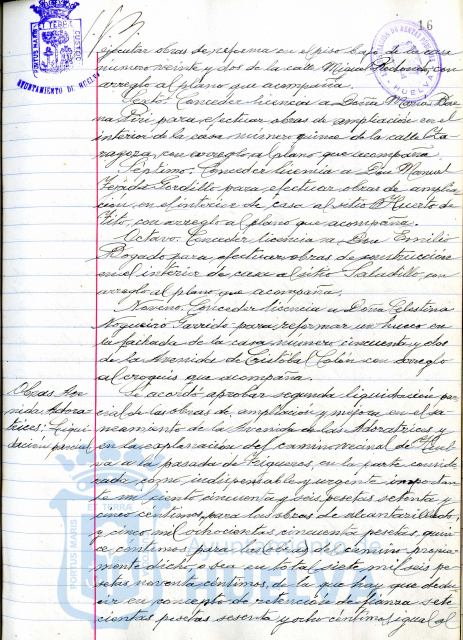 16
PORTUS MARIS ET TERRE CUSTODIA
AYUNTAMIENTO DE HUELVA
HUELVA
ejecutar obras de reforma en el piso bajo de la casa
número veinte y dos de la calle Miguel Redondo, con
arreglo al plano que acompaña.
Sexto. Conceder licencia a Doña María
para efectuar obras de ampliación en el
interior de la casa número quince de la calle Za-
ragoza, con arreglo al plano que acompaña.
Séptimo. Conceder licencia a Don Manuel
Gordillo para efectuar obras de amplia-
ción en el interior de casa al sitio Huerto de
Tito, con arreglo al plano que acompaña.
Octavo. Conceder licencia a Don Emilio
Bogado para efectuar obras de construcción
en el interior de casa al sitio Saladillo, con
arreglo al plano que acompaña.
Noveno. Conceder licencia a Doña Celestina
Nogueiro Garrido para reformar un hueco en
la fachada de la casa número cincuenta y dos
de la Avenida de Cristóbal Colón con arreglo
al croquis que acompaña.
Obras Ave-
nida Adora-
trices: Liqui-
dación parcial
Se acordó aprobar segunda liquidación par-
cial de las obras de ampliación y mejora en el sa-
neamiento de la Avenida de las Adoratrices y
en la explanación del camino vecinal de Huel-
va a la pasada de Figueras, en la parte conside-
rada como indispensable y urgente importan-
te mil ciento cincuenta y seis pesetas setenta y
cinco céntimos, para las obras de alcantarillado,
y cinco mil ochocientas cincuenta pesetas, quin-
ce céntimos para las obras de camino propia-
mente dicho, o sea en total siete mil seis pe-
setas noventa céntimos, de la que hay que dedu-
cir en concepto de retención de fianza sete-
cientas pesetas sesenta y ocho céntimos, igual al
Ayuntamiento de
HUELVA
PORTUS MARIS ET TERRE CUSTODIA